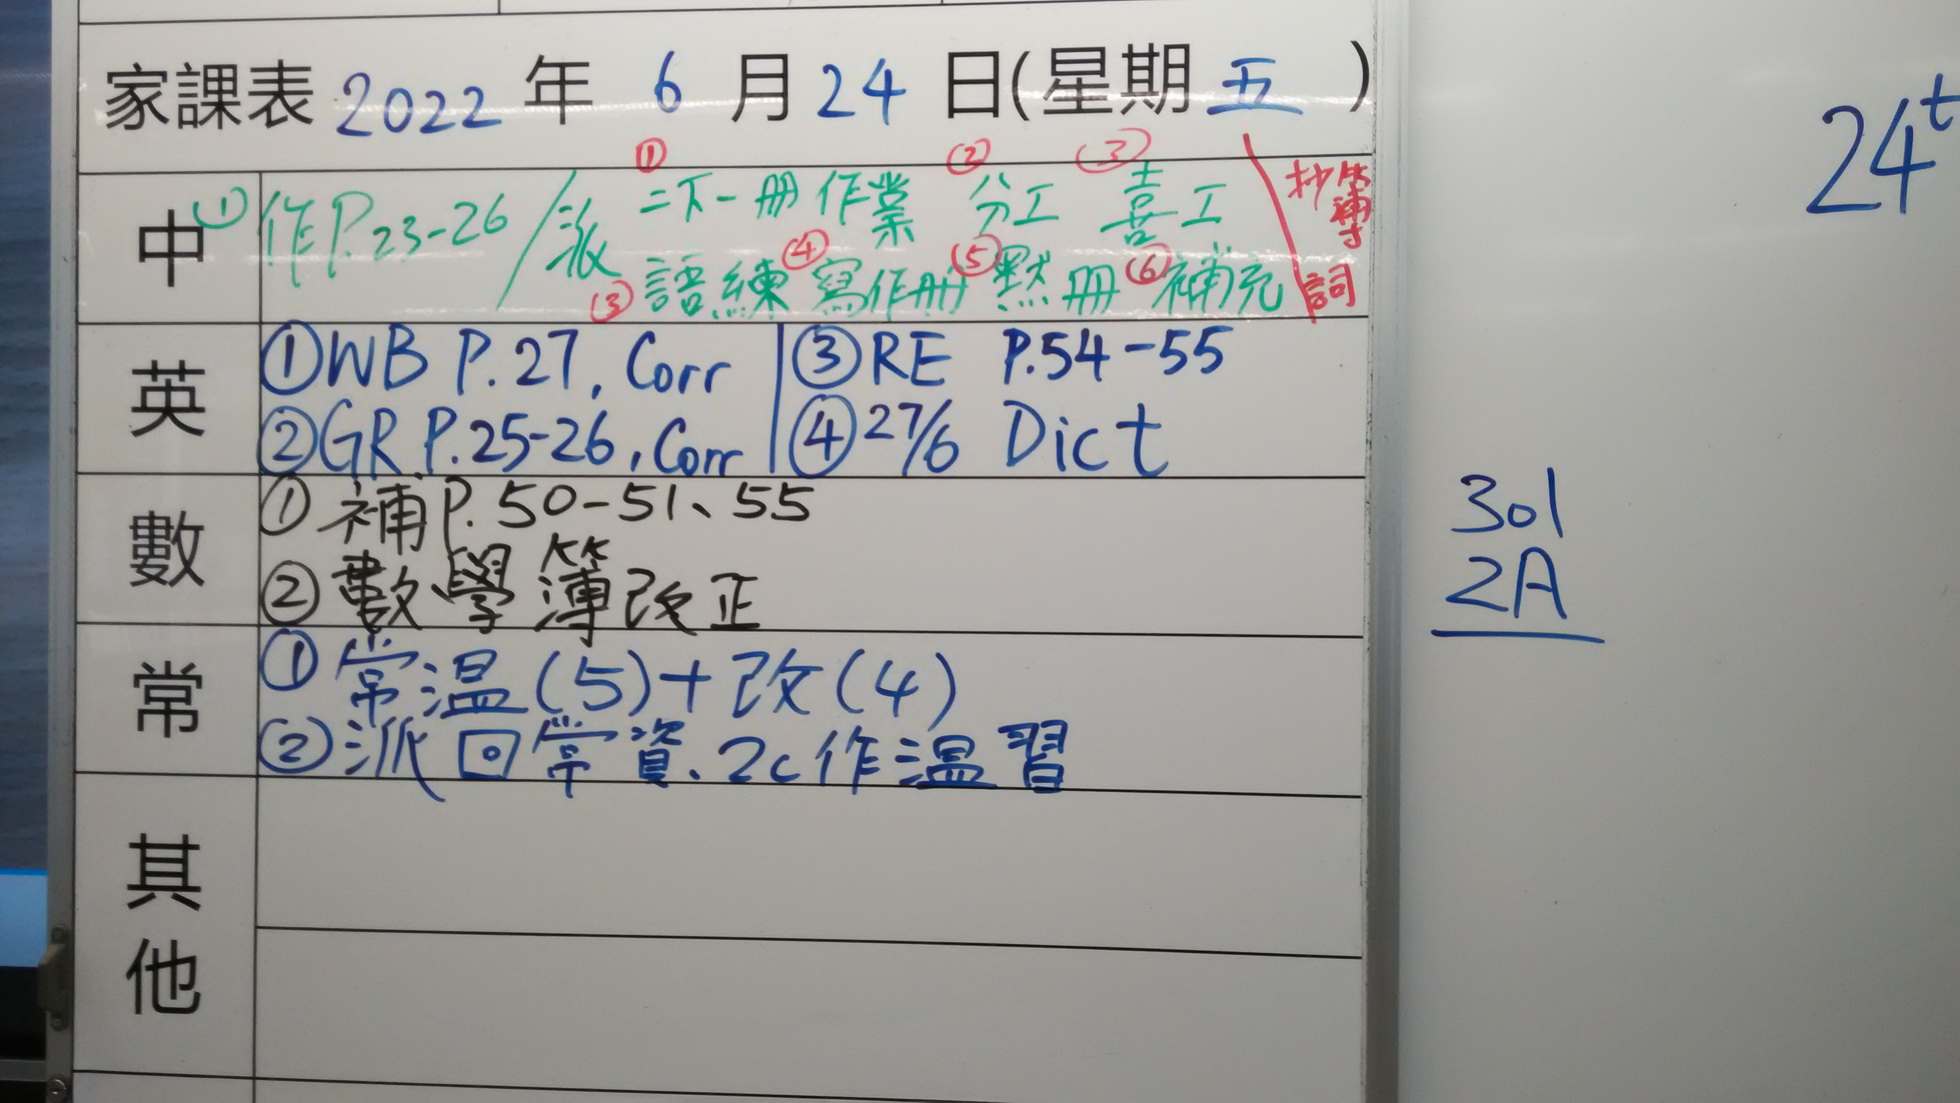 家課表 2022 年 6 月 24 日(星期五)
中 ① 作P.23-26 / 派 ① 二下一冊 作業 ② 分工 ③ 喜工
③ 語練 ④ 寫作冊 ⑤ 默冊 ⑥ 補充
抄簿
詞
英 ①WB P.27, Corr ③RE P.54-55
②GR P.25-26, Corr ④27/6 Dict
數 ① 補P.50-51、55
② 數學簿改正
常 ① 常温(5)+改(4)
② 派回常資、2c作温習
其他
24t
301
2A